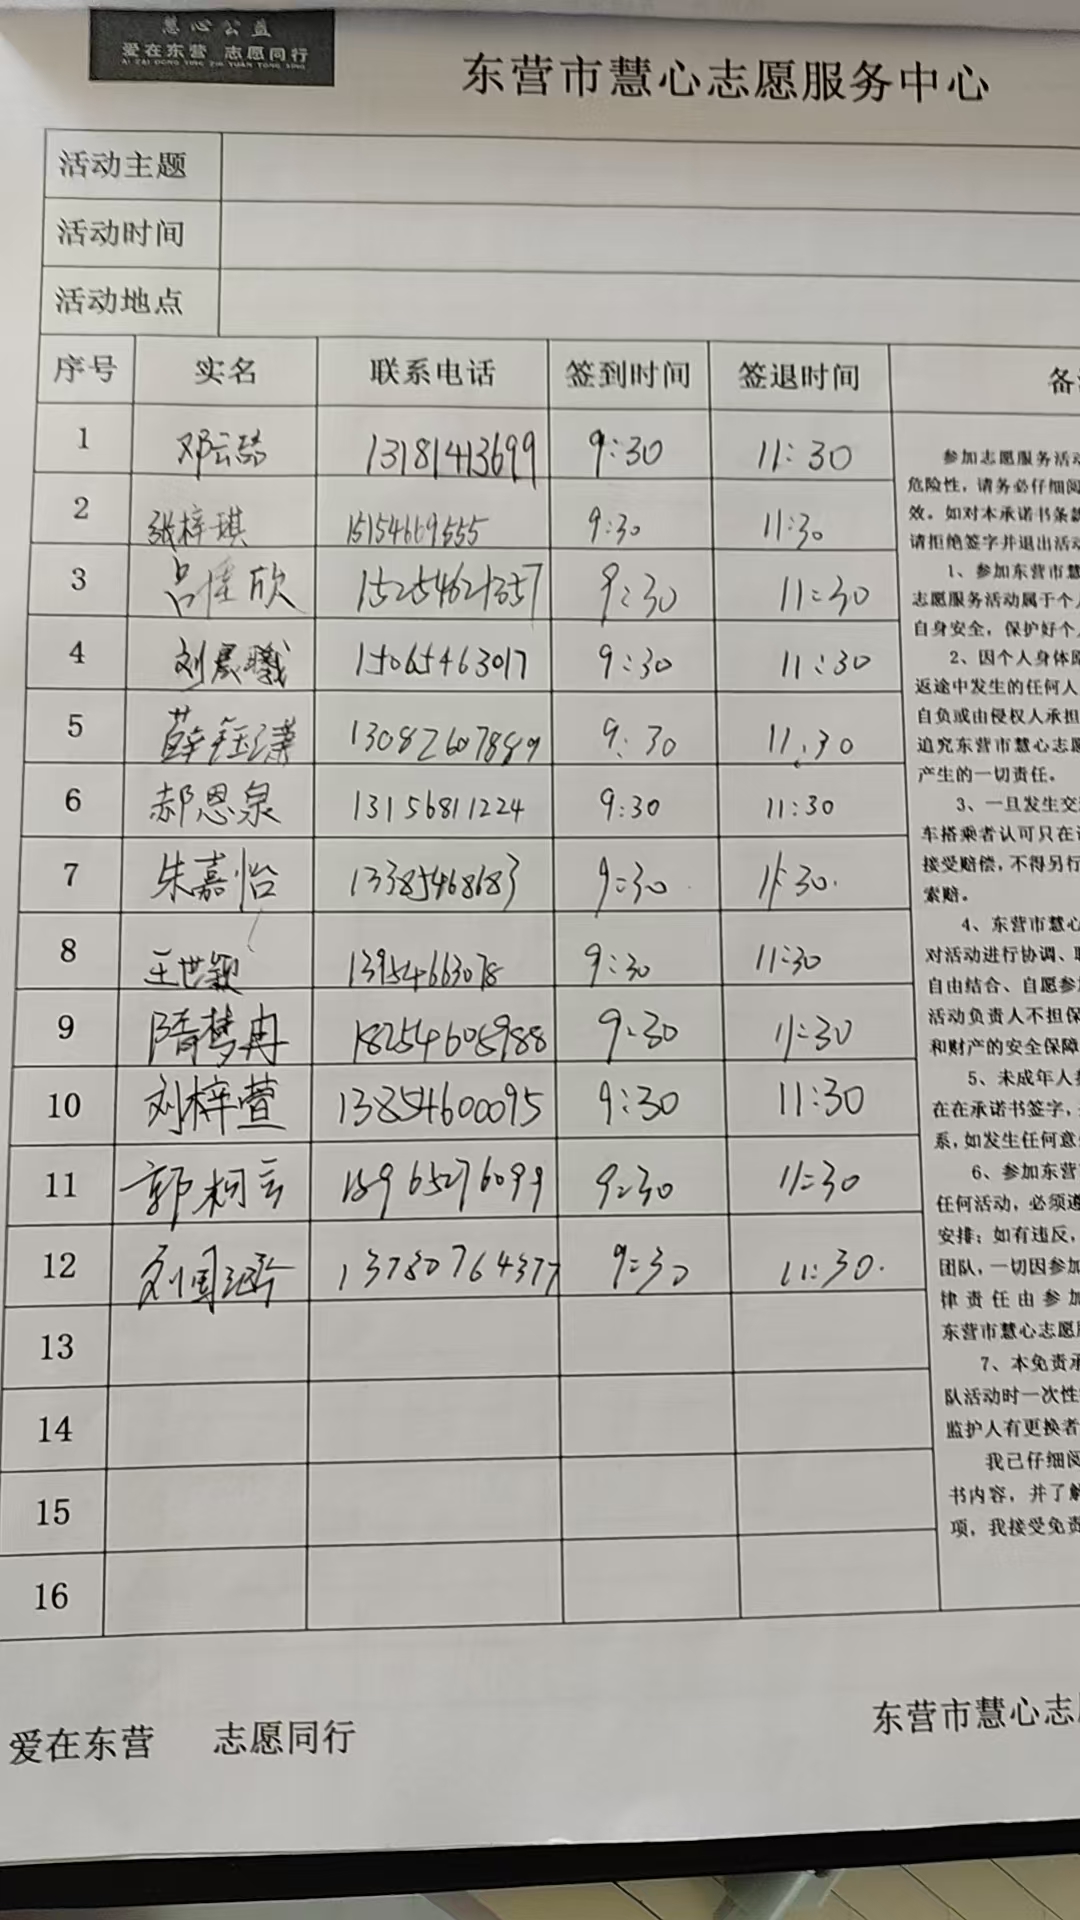 慧心公益
爱在东营 志愿同行
AI ZAI DONG YING ZHI YUAN TONG XING
东营市慧心志愿服务中心
活动主题
活动时间
活动地点
序号 实名 联系电话 签到时间 签退时间 备
1 邓云 13181413699 9:30 11:30
2 张梓琪 15154669555 9:30 11:30
3 吕佳欣 15254621357 9:30 11:30
4 刘晨曦 15065463017 9:30 11:30
5 薛钰潇 13082607889 9:30 11:30
6 郝恩泉 13156811224 9:30 11:30
7 朱嘉怡 13385468683 9:30 11:30
8 王世颖 13954663078 9:30 11:30
9 隋梦冉 18254605988 9:30 11:30
10 刘梓萱 13854600095 9:30 11:30
11 郭柯云 15965276099 9:30 11:30
12 刘国 13780764377 9:30 11:30
13
14
15
16
参加志愿服务活动
危险性，请务必仔细阅
效。如对本承诺书条款
请拒绝签字并退出活动
1、参加东营市慧
志愿服务活动属于个人
自身安全，保护好个人
2、因个人身体原
返途中发生的任何人
自负或由侵权人承担
追究东营市慧心志愿
产生的一切责任。
3、一旦发生交
车搭乘者认可只在
接受赔偿，不得另行
索赔。
4、东营市慧心
对活动进行协调、联
自由结合、自愿参加
活动负责人不担保
和财产的安全保障
5、未成年人参
在在承诺书签字，
系，如发生任何意
6、参加东营
任何活动，必须遵
安排；如有违反，
团队，一切因参加
律责任由参加
东营市慧心志愿
7、本免责承
队活动时一次性
监护人有更换者
我已仔细阅
书内容，并了解
项，我接受免责
爱在东营 志愿同行
东营市慧心志愿